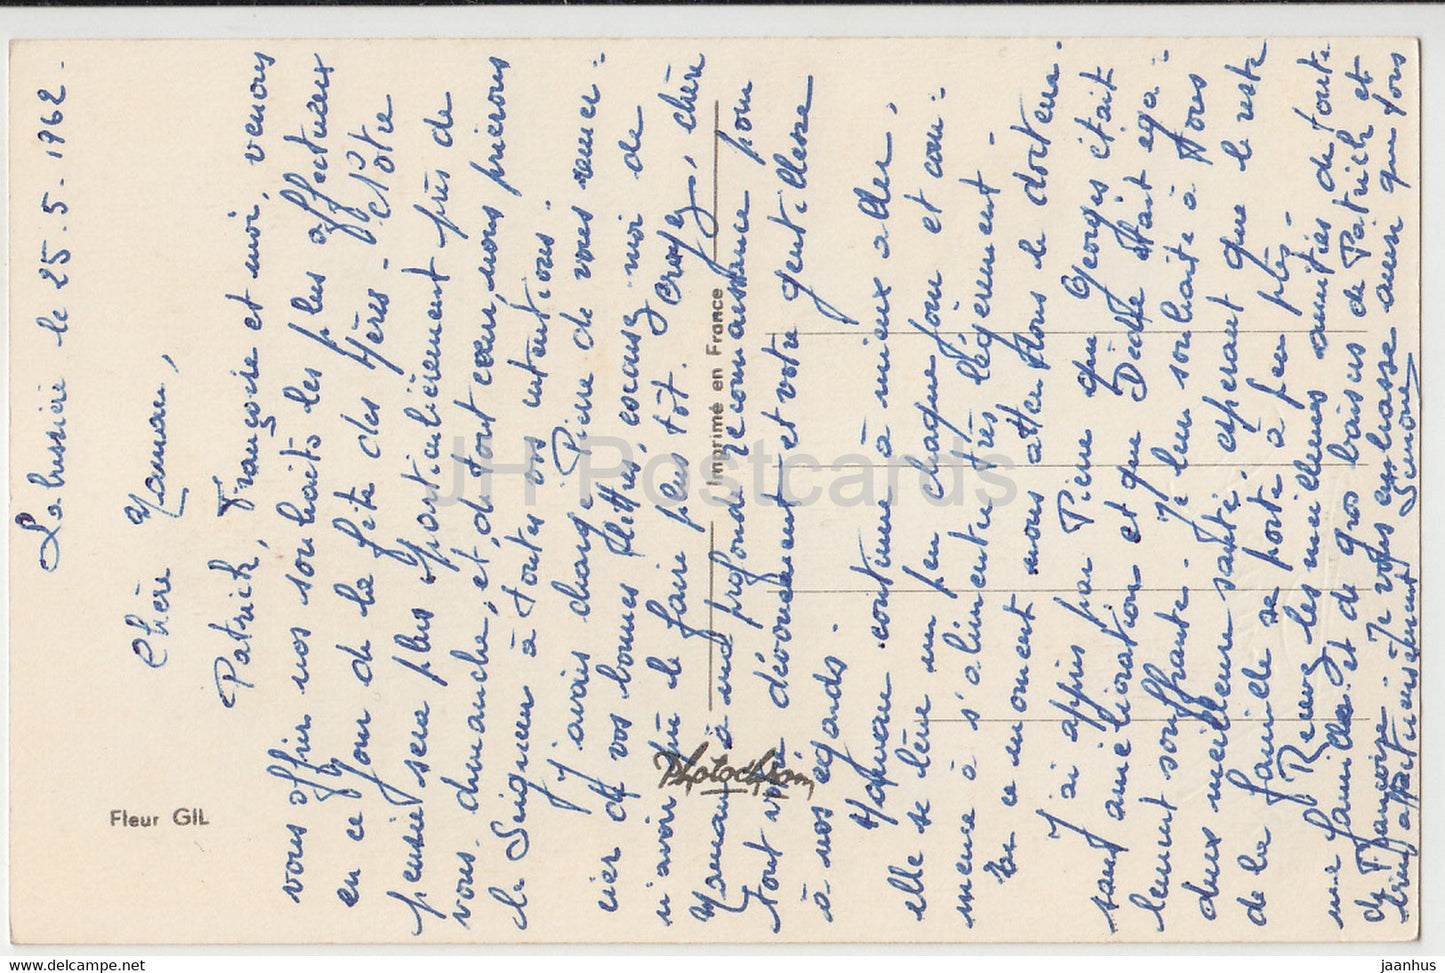 Labussière le 25.5.1962.
Chère Maman,
Patrick, Françoise et moi, venons
vous offrir nos souhaits les plus affectueux
en ce jour de la fête des Mères - Nôtre
pensée sera plus particulièrement près de
vous, dimanche, et, de tout cœur, nous prierons
le Seigneur à toutes vos intentions.
J'avais chargé Pierre de vous remer-
cier de vos bonnes lettres, excusez-moi de
n'avoir pu le faire plus tôt. Croyez, chère
Maman, à ma profonde reconnaissance pour
tout votre dévouement et votre gentillesse
à nos égards.
Maman continue à mieux aller,
elle se lève un peu chaque jour et com-
mence à s'alimenter très légèrement -
En ce moment nous attendons le docteur.
J'ai appris par Pierre que Georges était
sans amélioration et que Dédée était éga-
lement souffrante. Je leur souhaite à tous
deux meilleure santé, espérant que le reste
de la famille se porte à peu près.
Recevez les meilleures amitiés de toute
ma famille et de gros baisers de Patrick et
Françoise. Je vous embrasse ainsi que tous
très affectueusement Simone
Fleur GIL
Imprimé en France
Photochrom
JH Postcards
www.delcampe.net
jaanhus